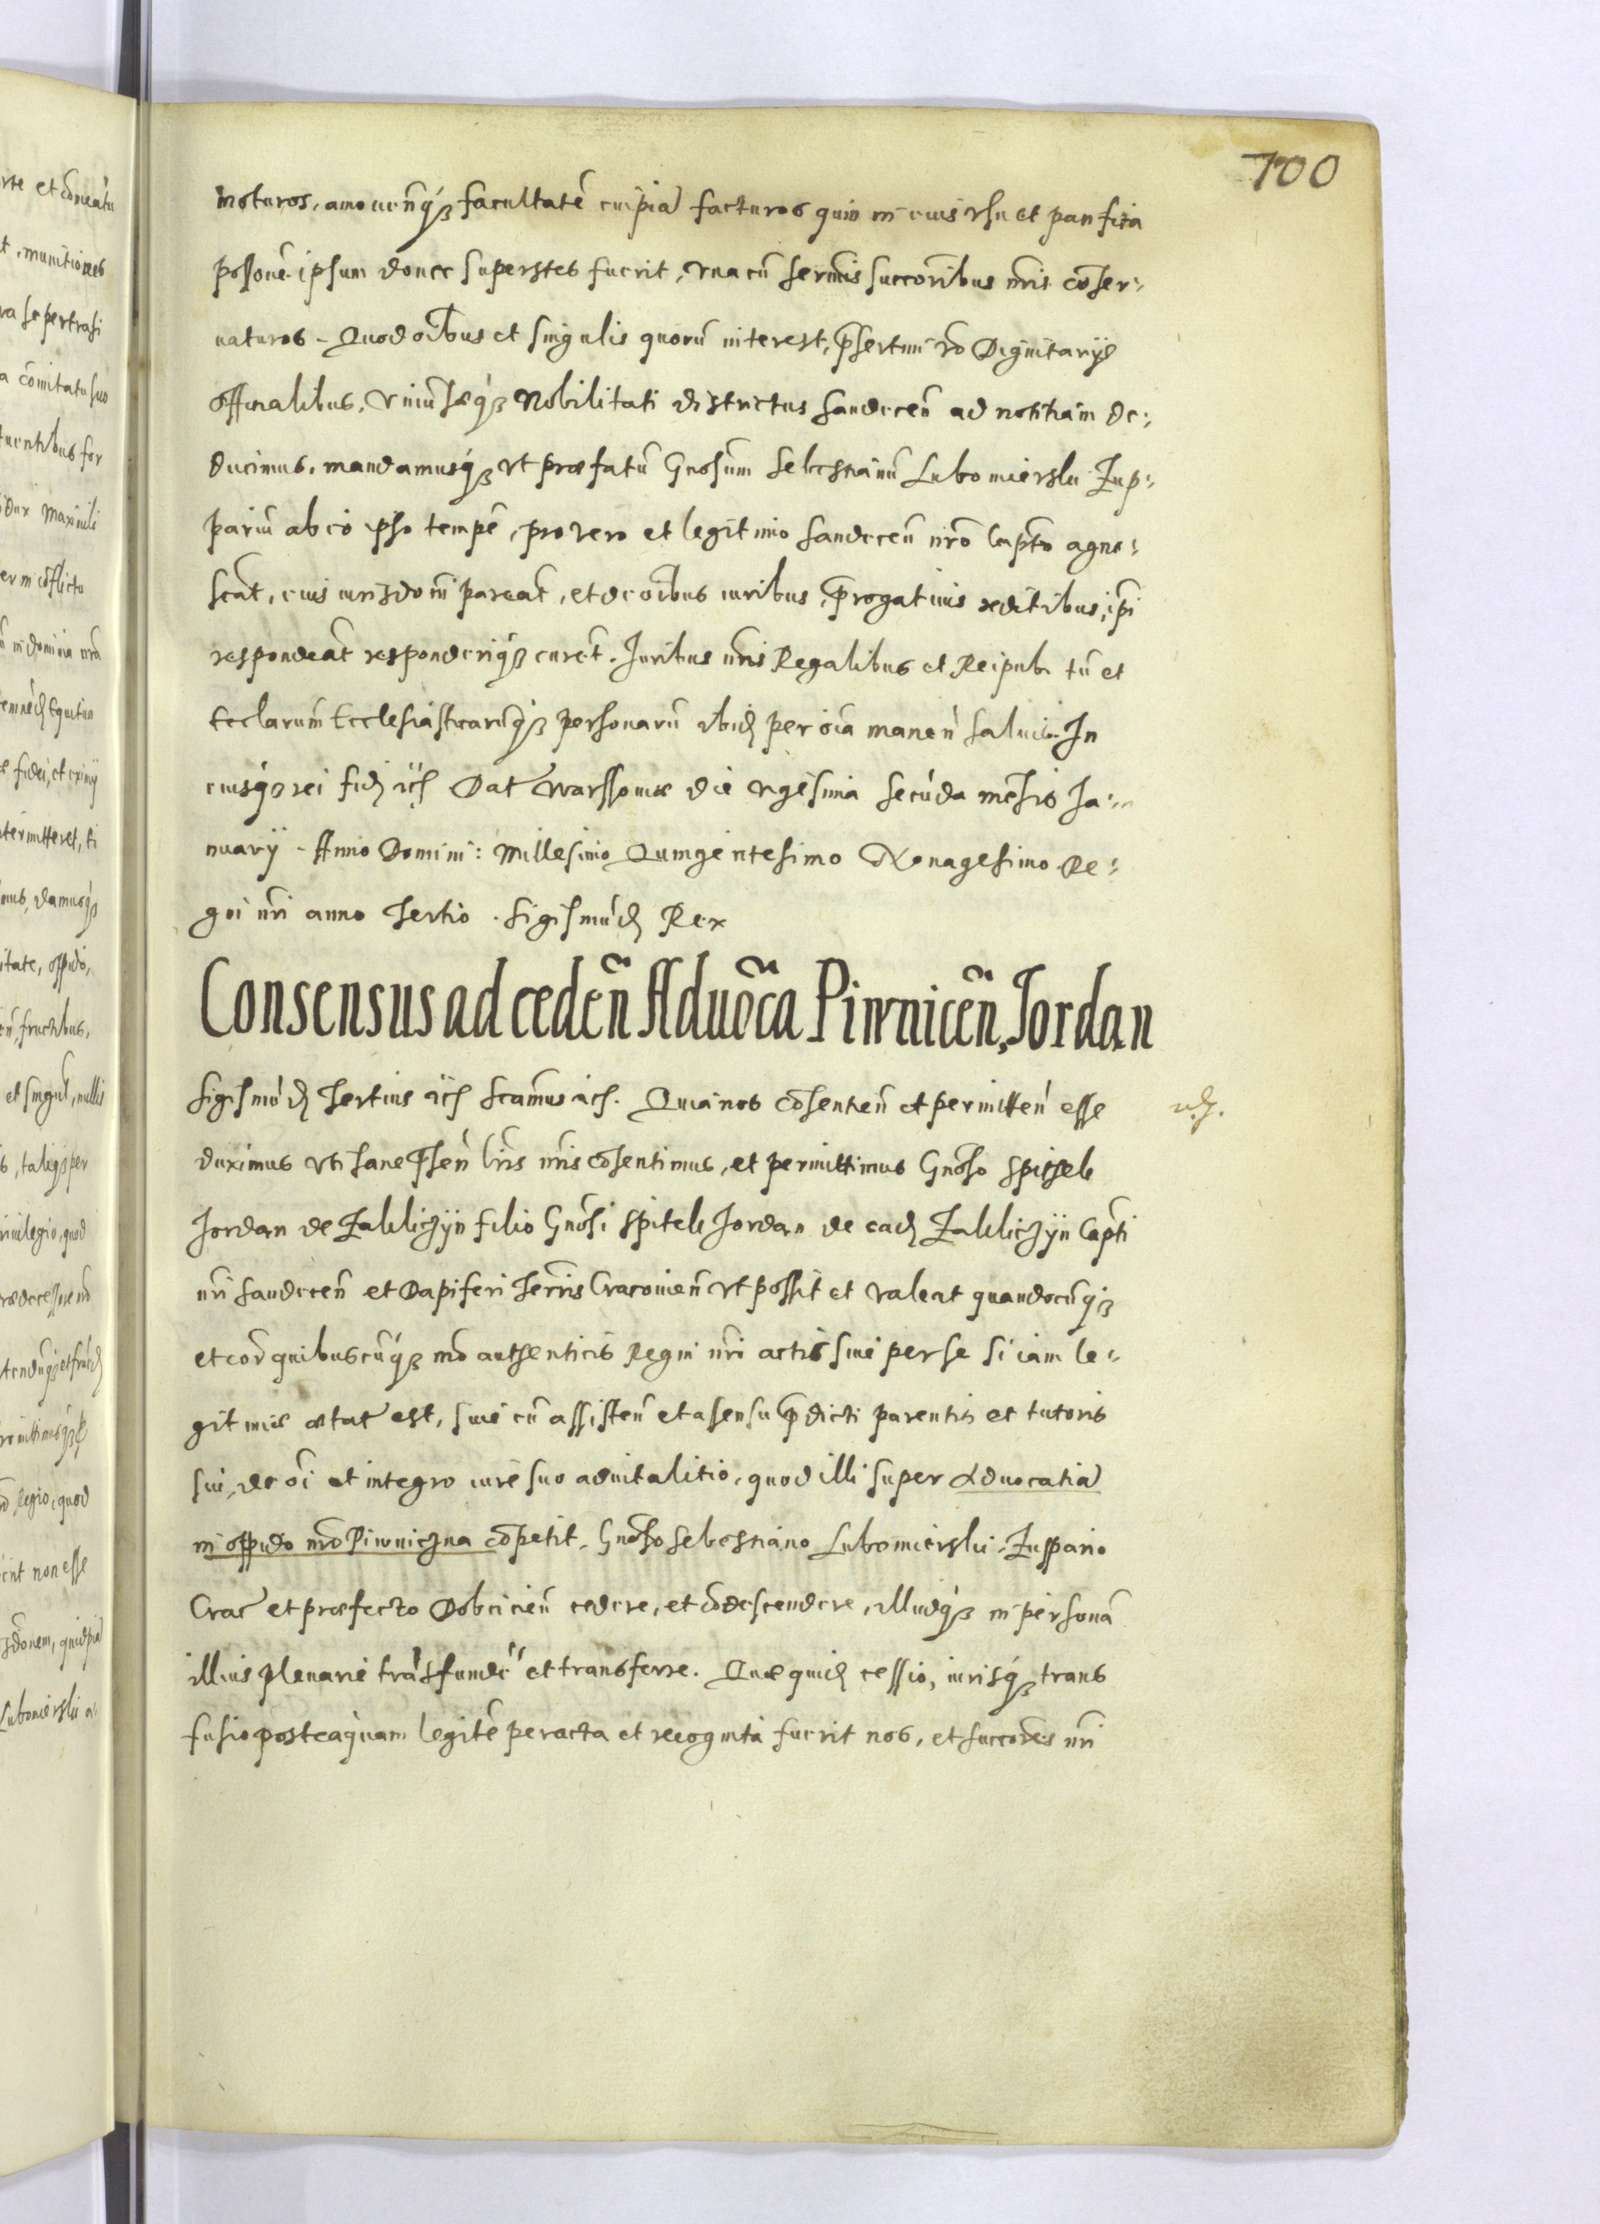 700
moturos, amovenq3 facultatē cuipiā facturos quin in eius vsu et pan fita
possone ipsum donec superstes fuerit, vna cū sermis succoribus nris coser=
uaturos. Quod oibus et singulis quorū interest, psertim vo Dignitarijs
officialibus, vniusaeq3 Nobilitati districtus Sandecen ad notitiam de=
ducimus, mandamusq3 vt praefatū Gnosum Sebestianū Lubomierski Zup=
pariū ab eo ipso tempe, pro vero et legitimo Sandecen nro Capto agno=
scāt, eius iurisdoni pareāt, et de oibus iuribus, progatiuis reditibus, ipi
respondeāt responderiq3 curēt. Juribus nris Regalibus et Reipub. tū et
Ecclarum Ecclesiasticarūq3 personarū ibid per oia manen saluis. In
cuius q3 rei fid etc Dat Warssouiae die vigesima secūda mēsis Ja=
nuarij. Anno Domini: Millesimo Quingentesimo Nonagesimo Re=
gni nri anno Tertio. Sigismūd Rex
Consensus ad ceden Aduoca Piwnicen, Jordan
Sigismūd Tertius etc Scamus etc. Quia nos cosentien et permitten esse
duximus vti sane psen lris nris cosentimus, et permittimus Gnoso Spitsek
Jordan de Zakliczÿn filio Gnosi Spitek Jordan de ead Zakliczÿn Capti
nri Sandecen et Dapiferi Terris Cracouien vt possit et valeat quandocūq3
et cor quibuscūq3 mo authenticis Regni nri actis siue per se si iam le=
gitimae aetat est, siue cū assisten et asensu pdicti parentis et tutoris
sui, de oi et integro iure suo aduitalitio, quod illi super Aduocatiā
in oppido nro Piwniczna copetit, Gnoso Sebestiano Lubomierski, Zuppario
Crac et praefecto Dobcicien cedere, et codescendere, illudq3 in personā
illius plenarie trāsfunde et transferre. Quae quid cessio, iurisq3 trans
fusio posteaquam legite peracta et recognita fuerit nos, et succores nri